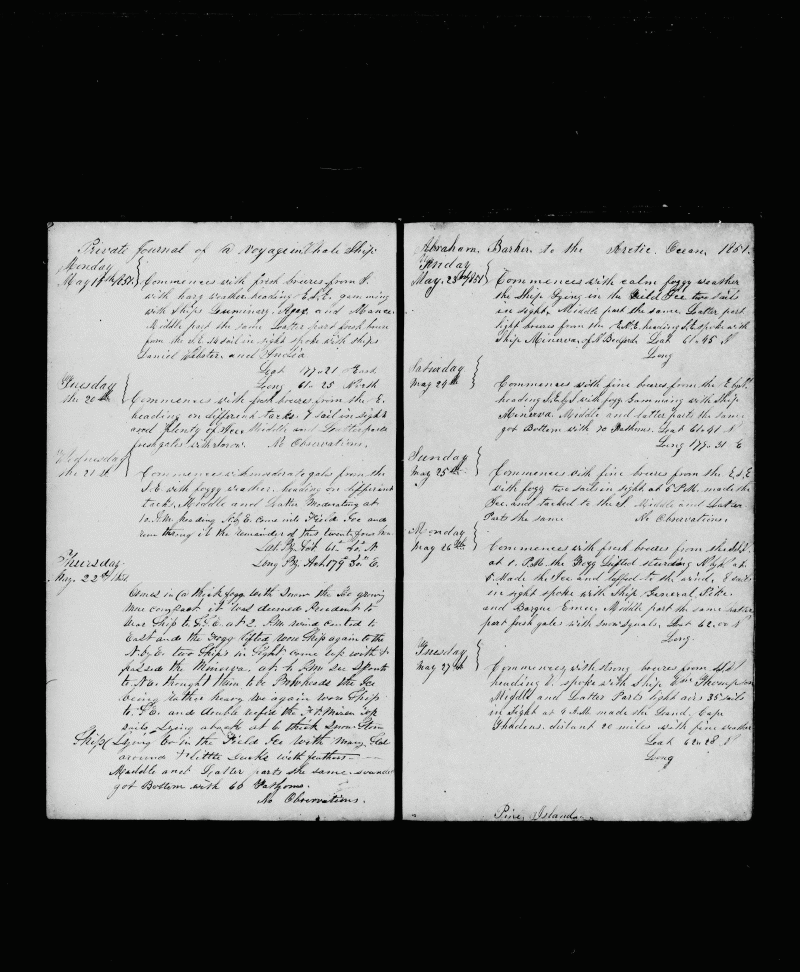 Private Journal of a voyage in Whale Ship
Monday
May 19th 1851 } Commences with fresh breeses from S.
with hazy weather heading E.S.E. gamming
with Ships Luminery. Ajax and Manco
Middle part the same Latter part fresh breeses
from the S.E. 14 sail in sight spoke with ships
Daniel Webster. and India
Lat 177..21 East
Long 61..25 North
Tuesday
the 20th } Commences with fresh breeses from the E.
heading on different tacks. 7 sail in sight
and plenty of Ice Middle and Latter parts
fresh gales with snow. No Observations.
Wednesday
the 21st } Commences with moderate gales from the
S.E. with foggy weather. heading on different
tacks. Middle and Latter Moderating at
10. A.M. heading N.b.E. came into Field Ice and
run throug it the remainder of this twenty four hours
Lat. By. Obt. 61° 20' N
Long By. Acct 179° 30" E.
Thursday
May. 22nd 1851. Comes in a thick fogg with Snow the Ice growing
more compact it was deemed Prudent to
War Ship to S.E. at 2. P.M. wind canted to
East and the Fogg lifted wore Ship again to the
N.b.E. two Ships in Sight came up with &
passed the Minerva. at 4 P.M. See Spouts
to N.E. thought them to be Bowheads the Ice
being rather heavy we again wore Ship
to S.E. and double reefed the F & Mizen Top
sails Lying aback at 6 thick Snow Storm
Ship Lying to in the Field Ice with many Seal
around & Little Ducks with feathers
Middle and Latter parts the same sounded
got Bottom with 60 Fathoms.
No Observations.
Abraham Barker to the Arctic Ocean 1851.
Friday
May. 23rd 1851 } Commences with calm foggy weather
the Ship Lying in the Field Ice two sails
in sight. Middle part the same. Latter part
light breeses from the E.N.E. heading S.E. spoke with
Ship Minerva. of N Bedford. Lat 61..45 N
Long
Saturday
May 24th } Commences with fine breeses from the E.byS.
heading S.E.byS. with fogg. Gamming with Ship
Minerva. Middle and latter parts the same
got Bottom with 70 Fathoms. Lat 61..41 N
Long 177..31 E
Sunday
May 25th } Commences with fine breeses from the E.S.E
with fogg two sails in sight. at 5 P.M. made the
Ice and tacked to the S Middle and Latter
Parts the same No Observations.
Monday
May 26th } Commences with fresh breeses from the
at 1. P.M. the Fogg Lifted standing N.by.E. at
5 Made the Ice and luffed to the wind, sails
in sight spoke with Ship General Pike
and Barque Emer. Middle part the same latter
part fresh gales with snow squals. Lat 62..00 N
Long.
Tuesday
May 27th } Commences with strong breeses from
heading E. spoke with Ship Thompson
Middle and Latter Parts light airs 35 sails
in sight at 4 A.M. made the Land. Cape
Thadeus. distant 20 miles with fine weather
Lat 62..28 N
Long
Pine Island